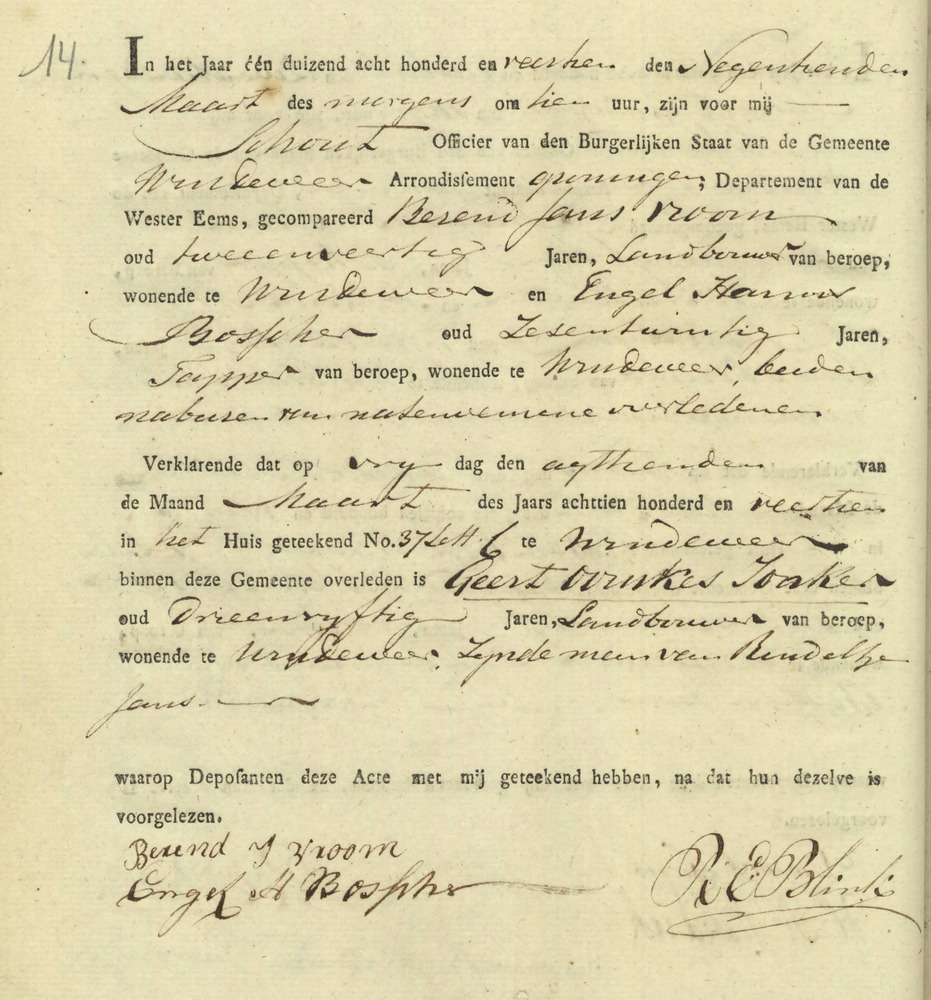 14.
In het Jaar één duizend acht honderd en veertien den Negentienden
Maart des morgens om tien uur, zijn voor mij
Schout Officier van den Burgerlijken Staat van de Gemeente
Windeweer Arrondissement groningen, Departement van de
Wester Eems, gecompareerd Berend Jans Vroom
oud tweeenveertig Jaren, Landbouwer van beroep,
wonende te Windeweer en Engel Harms
Bosscher oud Zesentwintig Jaren,
Tapper van beroep, wonende te Windeweer, beiden
naburen van natenoemene overledenen
Verklarende dat op vry dag den agttienden van
de Maand Maart des Jaars achttien honderd en veertien
in het Huis geteekend No. 37 Lett. C te Windeweer
binnen deze Gemeente overleden is Geert Jonker
oud Drieenvyftig Jaren, Landbouwer van beroep,
wonende te Windeweer, Zynde man van
Jans.
waarop Deposanten deze Acte met mij geteekend hebben, na dat hun dezelve is
voorgelezen.
Berend J Vroom
Engel H Bosscher
R E Blink